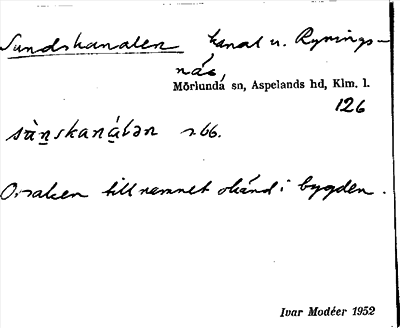 Sundskanalen kanal n. Rynings-
näs,
Mörlunda sn, Aspelands hd, Klm. l.
126
sùn̲skaná̲lən r.66.
Orsaken till namnet okänd i bygden.
Ivar Modéer 1952